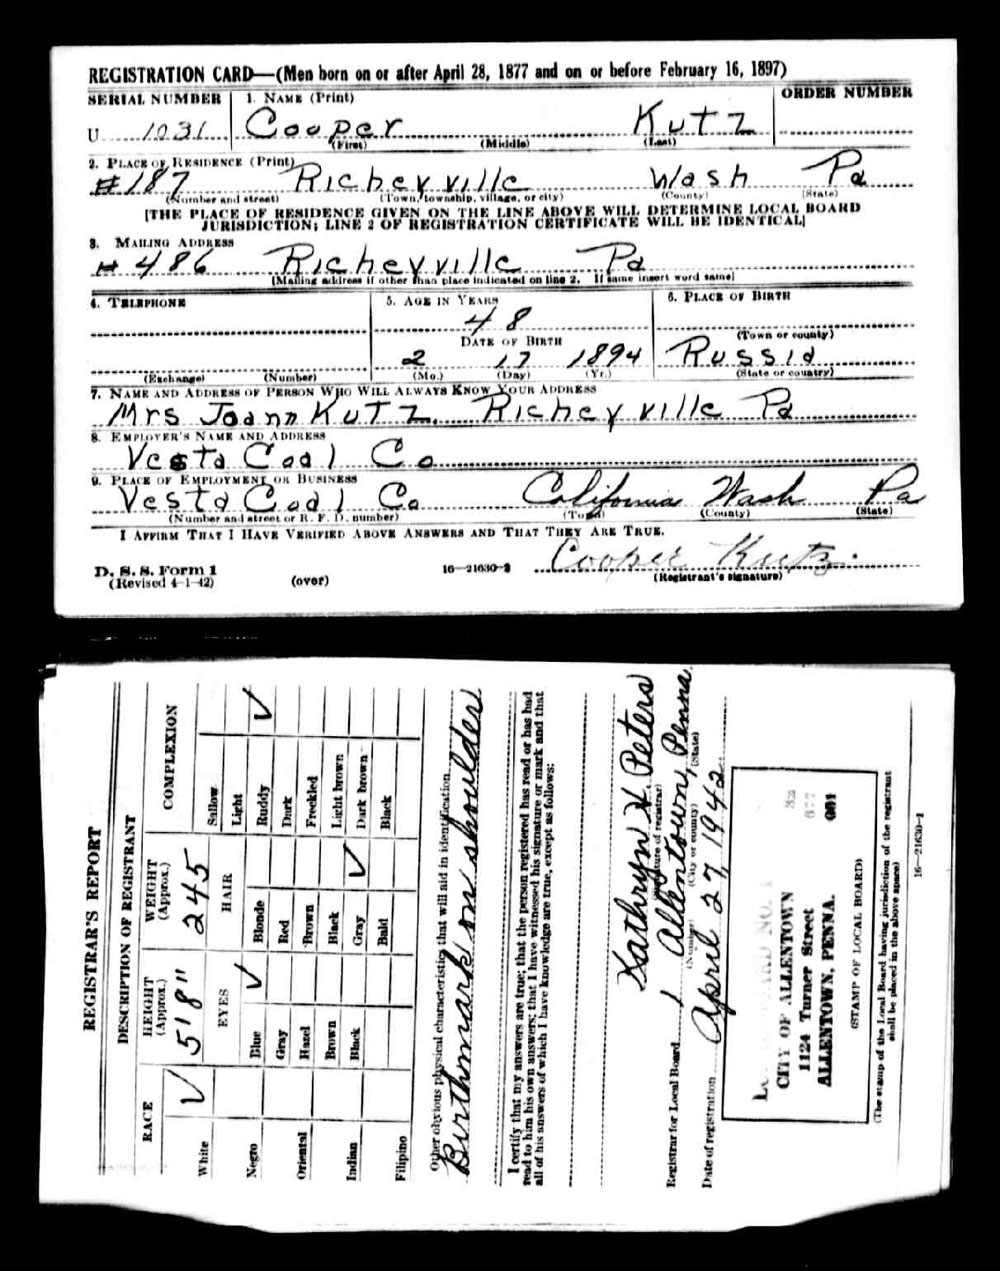 REGISTRATION CARD—(Men born on or after April 28, 1877 and on or before February 16, 1897)
SERIAL NUMBER 1. NAME (Print) ORDER NUMBER
U 1031 Cooper Kutz
(First) (Middle) (Last)
2. PLACE OF RESIDENCE (Print)
#187 Richeyville Wash Pa
(Number and street) (Town, township, village, or city) (County) (State)
[THE PLACE OF RESIDENCE GIVEN ON THE LINE ABOVE WILL DETERMINE LOCAL BOARD
JURISDICTION; LINE 2 OF REGISTRATION CERTIFICATE WILL BE IDENTICAL]
3. MAILING ADDRESS
#486 Richeyville Pa
[Mailing address if other than place indicated on line 2. If same insert word same]
4. TELEPHONE 5. AGE IN YEARS 6. PLACE OF BIRTH
48
DATE OF BIRTH (Town or county)
2 17 1894 Russia
(Exchange) (Number) (Mo.) (Day) (Yr.) (State or country)
7. NAME AND ADDRESS OF PERSON WHO WILL ALWAYS KNOW YOUR ADDRESS
Mrs Joann Kutz Richeyville Pa
8. EMPLOYER'S NAME AND ADDRESS
Vesta Coal Co
9. PLACE OF EMPLOYMENT OR BUSINESS
Vesta Coal Co California Wash Pa
(Number and street or R. F. D. number) (Town) (County) (State)
I AFFIRM THAT I HAVE VERIFIED ABOVE ANSWERS AND THAT THEY ARE TRUE.
Cooper Kutz
D. S. S. Form 1
(Revised 4-1-42) (over) 16—21630-2 (Registrant's signature)
REGISTRAR'S REPORT
DESCRIPTION OF REGISTRANT
RACE HEIGHT (Approx.) WEIGHT (Approx.) COMPLEXION
White ✓ 5'8" 245 Sallow
EYES HAIR Light
Negro Blue ✓ Blonde Ruddy ✓
Gray Red Dark
Oriental Hazel Brown Freckled
Brown Black Light brown
Indian Black Gray ✓ Dark brown
Bald Black
Filipino
Other obvious physical characteristics that will aid in identification
Birthmark on shoulder
I certify that my answers are true; that the person registered has read or has had
read to him his own answers; that I have witnessed his signature or mark and that
all of his answers of which I have knowledge are true, except as follows:
Kathryn H Peters
(Signature of registrar)
Registrar for Local Board 1 Allentown, Penna.
(Number) (City or county) (State)
Date of registration April 27 1942
CITY OF ALLENTOWN
1124 Turner Street
ALLENTOWN, PENNA. 001
(STAMP OF LOCAL BOARD)
(The stamp of the Local Board having jurisdiction of the registrant
shall be placed in the above space)
16—21630-1